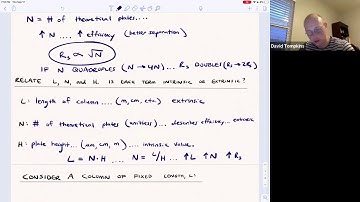 N = # of theoretical plates....
↑ N .... ↑ efficiency (better separation)
Rs ∝ √N
IF N QUADRUPLES (N → 4N) ... Rs DOUBLES (Rs → 2Rs)
RELATE L, N, AND H. IS EACH TERM INTRINSIC OR EXTRINSIC?
L: length of column .... (m, cm, etc.) extrinsic
N: # of theoretical plates (unitless) ... describes efficiency... extrinsic
H: plate height... (cm, m) .... intrinsic value.
L = N·H .... N = L/H ... ↑L ↑N ↑Rs
CONSIDER A COLUMN OF FIXED LENGTH, L:
David Tompkins